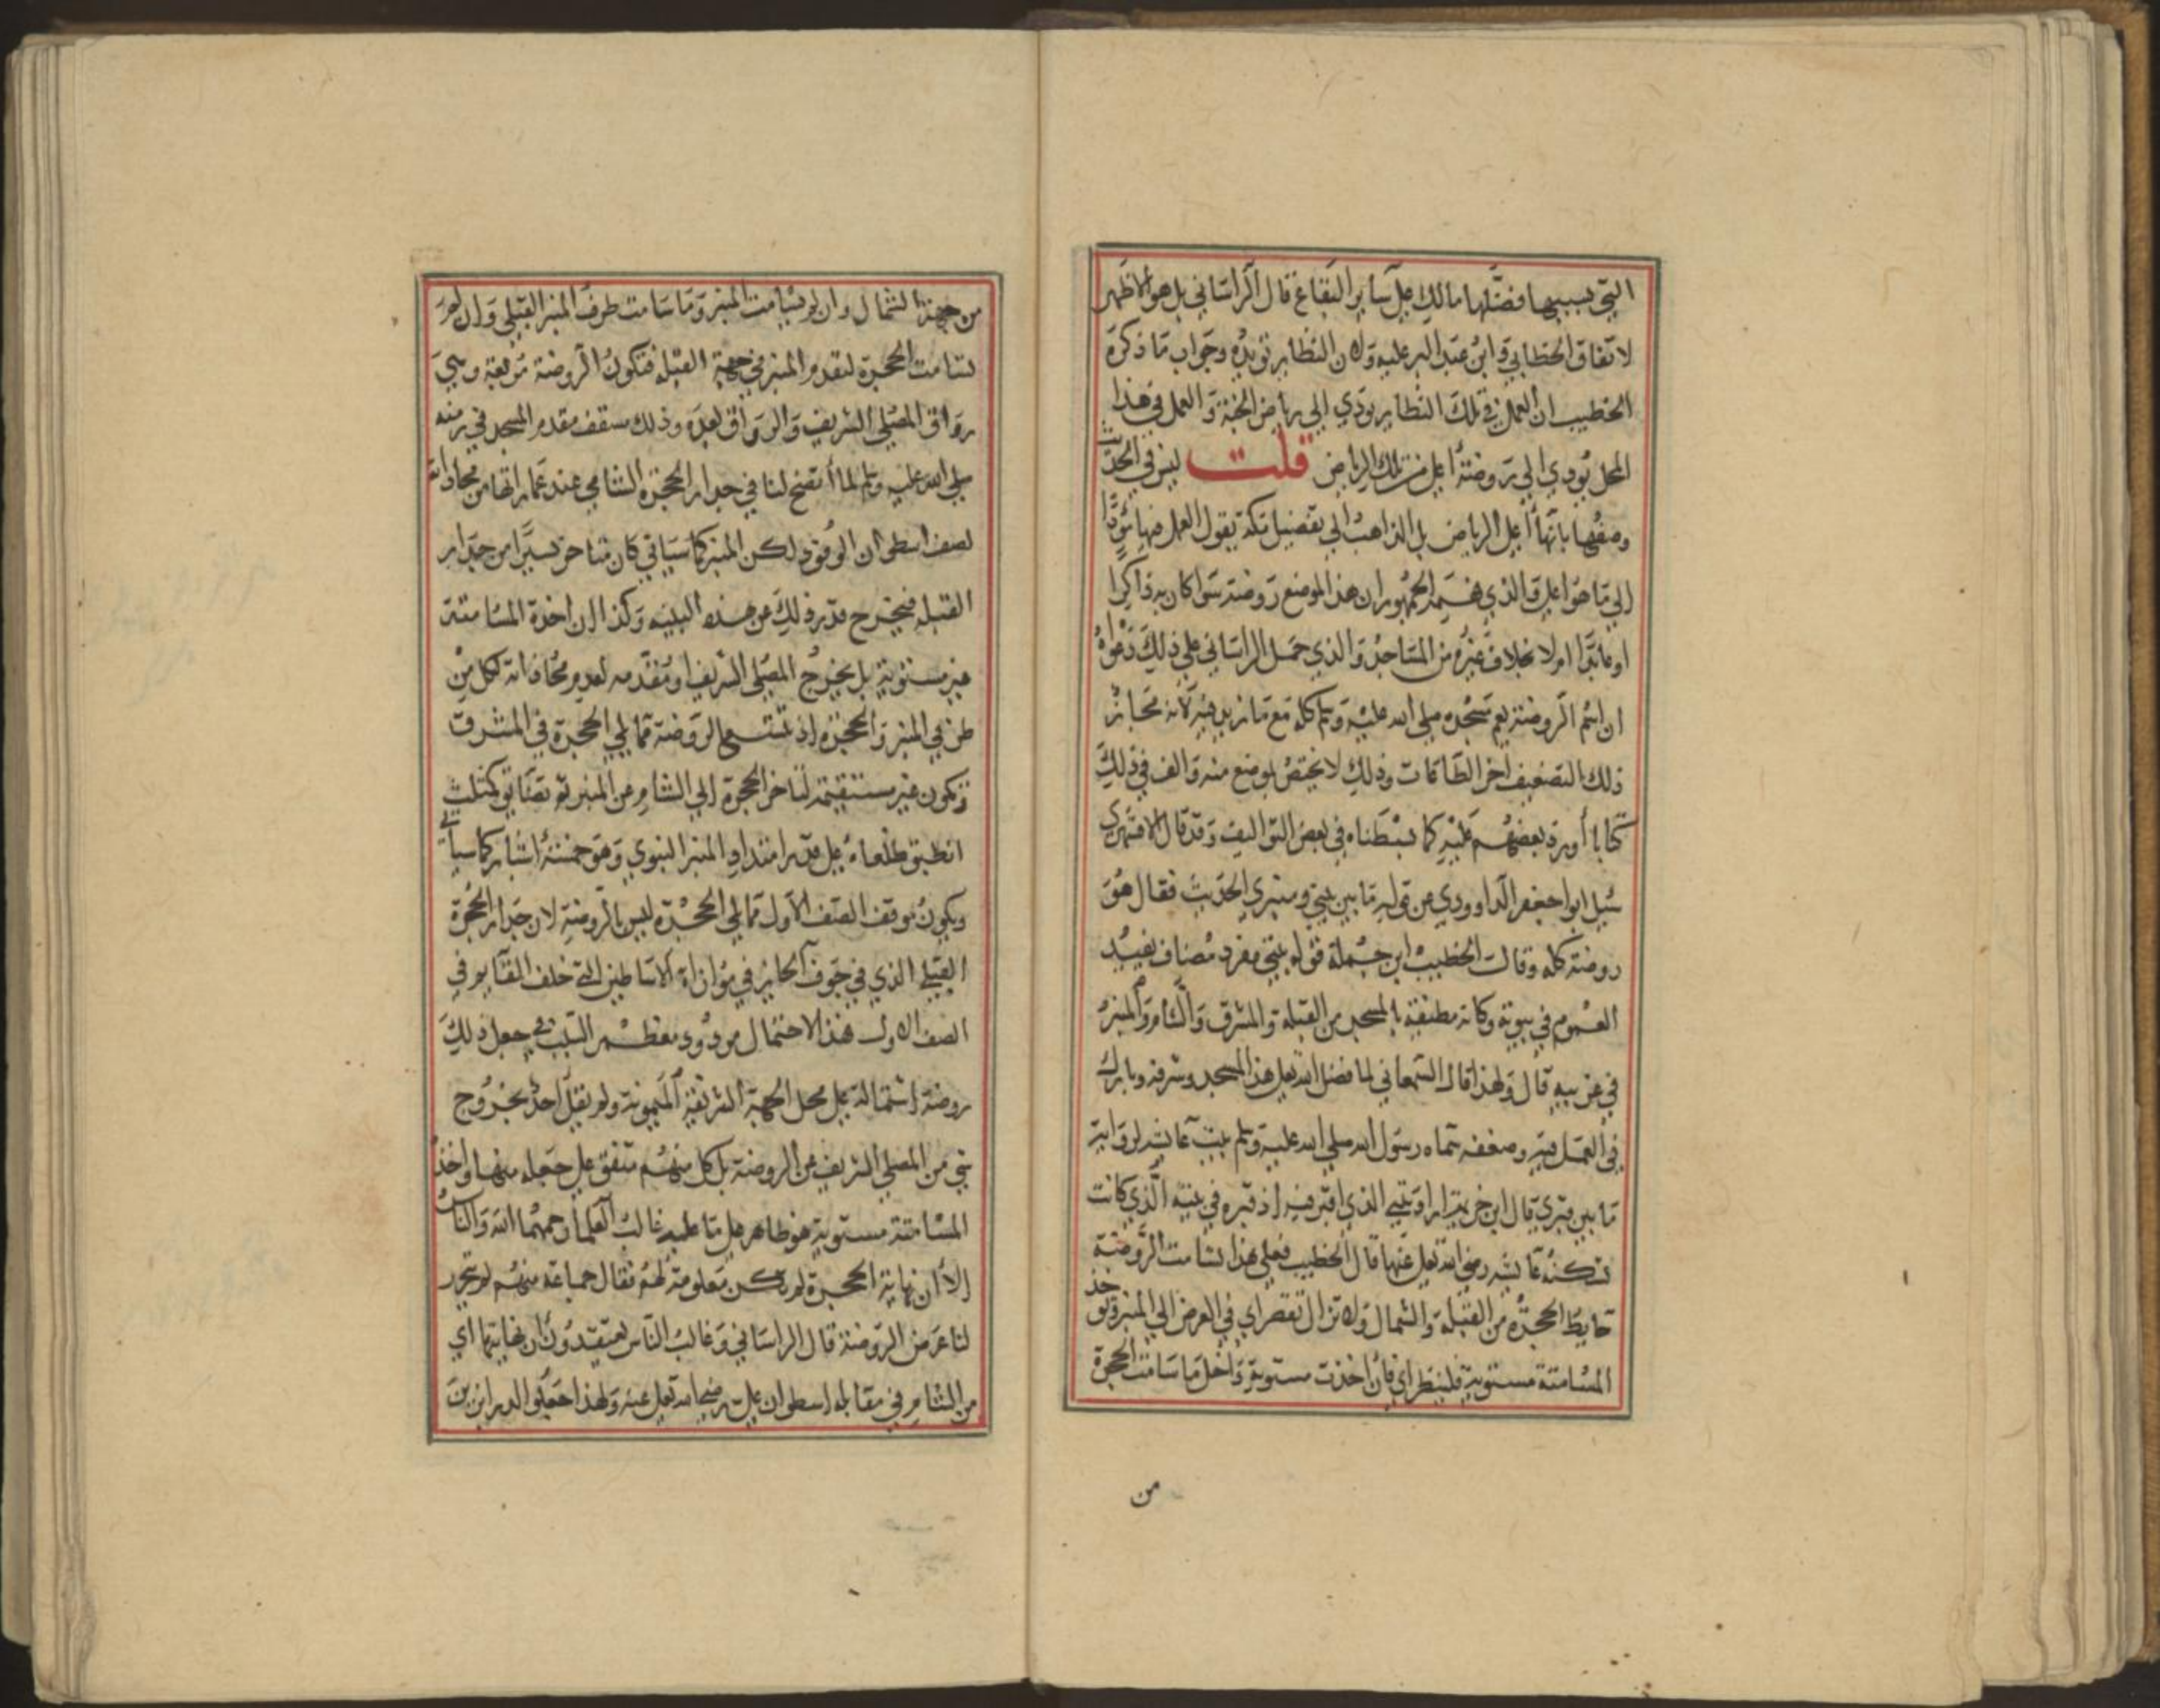 التي بسببها فضلها مالك على ساير البقاع قال الراساني بل هو الاظهر
لاتفاق الخطابي وابن عبد البر عليه ولان النظاير تويده وجواب ما ذكره
الخطيب ان العمل في تلك النظاير يودي الى رياض الجنة والعمل في هذا
المحل يودي الى روضة اعلى من تلك الرياض قلت ليس في الحديث
وصفها بانها اعلى الرياض بل الذاهب الى تفضيل مكة يقول العمل فيها يودي
الى ما هو اعلى والذي فهمه الجمهور ان هذا الموضع روضة سوا كان به ذاكرا
او عابدا ام لا بخلاف غيره من المساجد والذي حمل الراساني على ذلك دعواه
ان اسم الروضة يعم مسجده صلى الله عليه وسلم كله مع ما زيد فيه لانه محاز
ذلك التضعيف اخر الطاقات وذلك لا يختص بموضع منه والف في ذلك
كتابا أورد بعضهم عليه كما بسطناه في بعض التواليف وقد قال الاقشهري
سيل ابوا جعفر الداوودي عن قوله ما بين بيتي ومنبري الحديث فقال هو
روضة كله وقال الخطيب ابن جملة قوله بيتي مفرد مضاف يفيد
العموم في بيوته وكانت مطيفة بالمسجد من القبلة والمشرق والشام والمنبر
في غربيه قال ولهذا قال السمعاني لما فضل الله تعلى هذا المسجد وشرفه وبارك
في العمل فيه وضعفه سماه رسول الله صلى الله عليه وسلم بيت عايشة لرواية
ما بين قبري قال ابن خزيمة اراد بيتي الذي اقبر فيه اذ قبره في بيته الذي كانت
تسكنه عايشه رضي الله تعلى عنها قال الخطيب فعلى هذا تسامت الروضة
حايط الحجرة من القبلة والشمال ولا تزال تقصر اي في العرض الى المنبر وتوخذ
المسامتة مستوية فلينظر اي فان اخذت مستوية داخل ما سامت الحجرة
من
من جهة الشمال وان لم يسامت المنبر وما سامت طرف المنبر القبلي وان لم
تسامت الحجرة لتقدم المنبر في جهة القبلة فتكون الروضة مربعة وهي
رواق المصلى الشريف والرواق بعده وذلك سقف مقدم المسجد في زمنه
صلى الله عليه وسلم لما أتضح لنا في جدار الحجرة الشامي عند عمارتها من محاذاته
لصف اسطوان الوفود لكن المنبر كما سياتي كان متاخر يسيرا من جدار
القبلة فيخرج قدر ذلك عن هذه البينيه وكذا ان اخذة المسامتة
غير مستوية بل يخرج المصلى الشريف او مقدمه لعدم محاذاته لكل من
طرفي المنبر والحجرة اذ تتسع الروضة مما يلي الحجرة في المشرق
وتكون غير مستقيمة لتاخر الحجرة الى الشام عن المنبر ثم تضايق كمثلث
انطبق ظلعاه على قدر امتداد المنبر النبوي وهو خمسة اشبار كما سياتي
ويكون موقف الصف الاول مما يلي الحجرة ليس بالروضة لان جدار الحجرة
القبلي الذي في جوف الحايز في موازاة الاساطين التي خلف القايم في
الصف الاول هذا الاحتمال مردود ومعظم السبب في جعل ذلك
روضة اشتماله على محل الجبهة الشريفة الميمونة ولم نقل احد بخروج
شي من المصلى الشريف عن الروضة بل كل منهم متفق على جعله منها واخذ
المسامتة مستوية هو ظاهر على ما عليه غالب العلما رحمهما الله والناس
الا أن نهاية الحجرة لم تكن معلومة لهم فقال جماعة منهم لم يتحرر
لنا عرض الروضة قال الراساني وغالب الناس يعتقدون ان نهايتها اي
من الشام في مقابله اسطوان علي رضي الله تعلى عنه ولهذا جعلوا الدرابزين